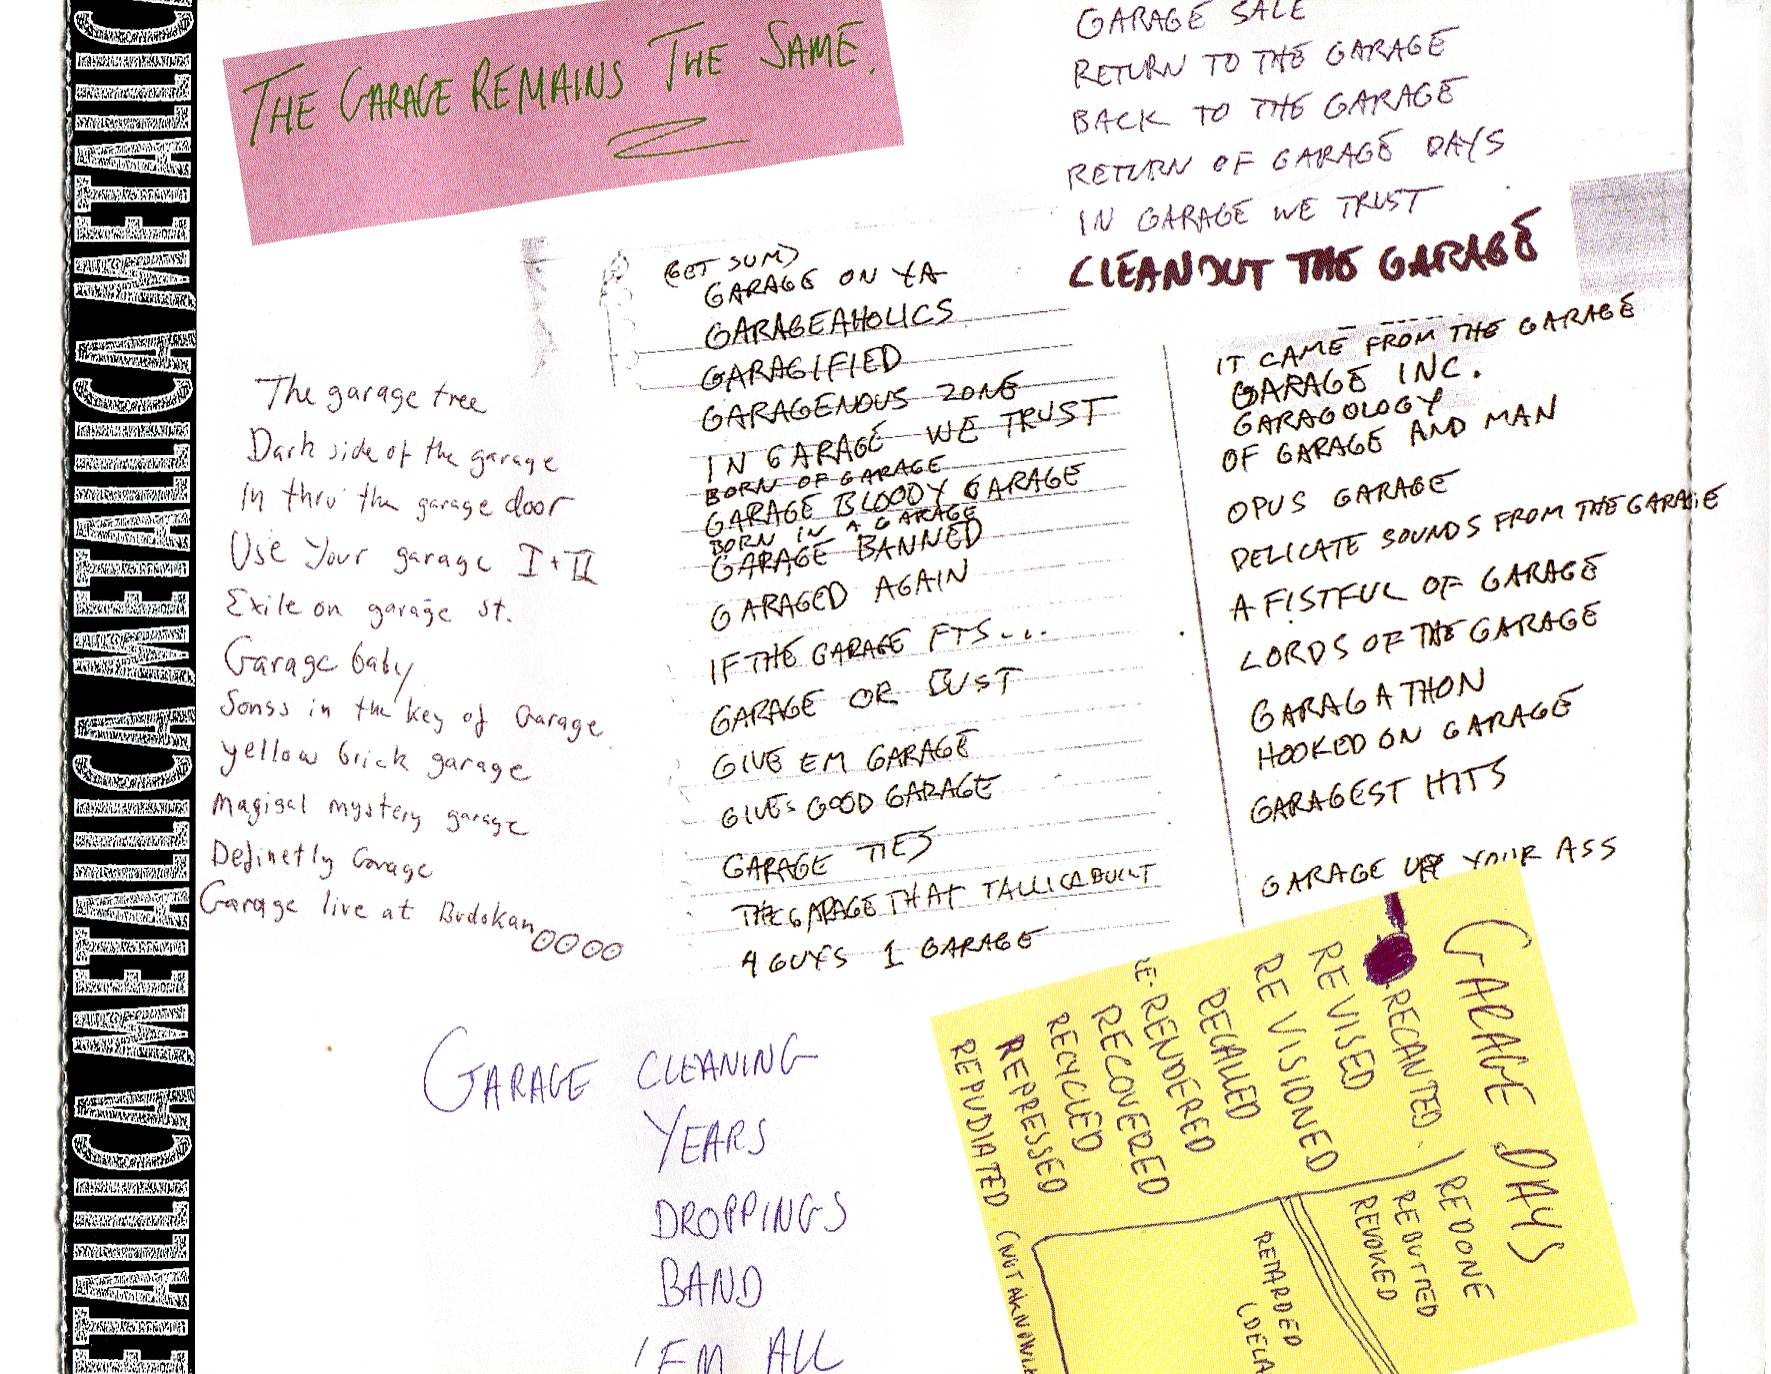 METALLICA METALLICA METALLICA METALLICA METALLICA
THE GARAGE REMAINS THE SAME.
GARAGE SALE
RETURN TO THE GARAGE
BACK TO THE GARAGE
RETURN OF GARAGE DAYS
IN GARAGE WE TRUST
CLEAN OUT THE GARAGE
The garage tree
Dark side of the garage
In thru the garage door
Use Your garage I + II
Exile on garage st.
Garage baby
Songs in the key of Garage
yellow brick garage
Magigal mystery garage
Definetly Garage
Garage live at Budokan
(GET SUM)
GARAGE ON YA
GARAGEAHOLICS
GARAGIFIED
GARAGENOUS ZONE
IN GARAGE WE TRUST
BORN OF GARAGE
GARAGE BLOODY GARAGE
BORN IN A GARAGE
GARAGE BANNED
GARAGED AGAIN
IF THE GARAGE FTS....
GARAGE OR BUST
GIVE EM GARAGE
GIVES GOOD GARAGE
GARAGE TIES
THE GARAGE THAT TALLICA BUILT
4 GUYS 1 GARAGE
IT CAME FROM THE GARAGE
GARAGE INC.
GARAGOLOGY
OF GARAGE AND MAN
OPUS GARAGE
DELICATE SOUNDS FROM THE GARAGE
A FISTFUL OF GARAGE
LORDS OF THE GARAGE
GARAGATHON
HOOKED ON GARAGE
GARAGEST HITS
GARAGE UP YOUR ASS
GARAGE CLEANING
YEARS
DROPPINGS
BAND
'EM ALL
GARAGE DAYS
RECANTED.
REVISED
RE VISIONED
RECALLED
RE-RENDERED
RECOVERED
RECYCLED
REPRESSED
REPUDIATED (NOT AKNOWL
REDONE
REBUTTED
REVOKED
RETARDED
(DELA